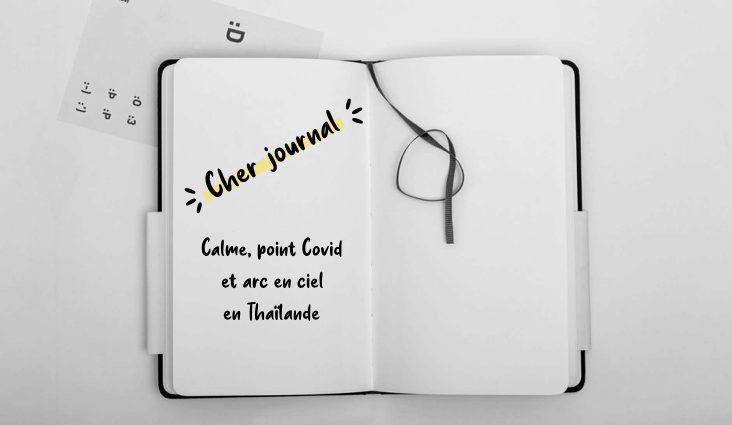 :D
:-) :P :O
:') :P :3
Cher journal
Calme, point Covid
et arc en ciel
en Thaïlande